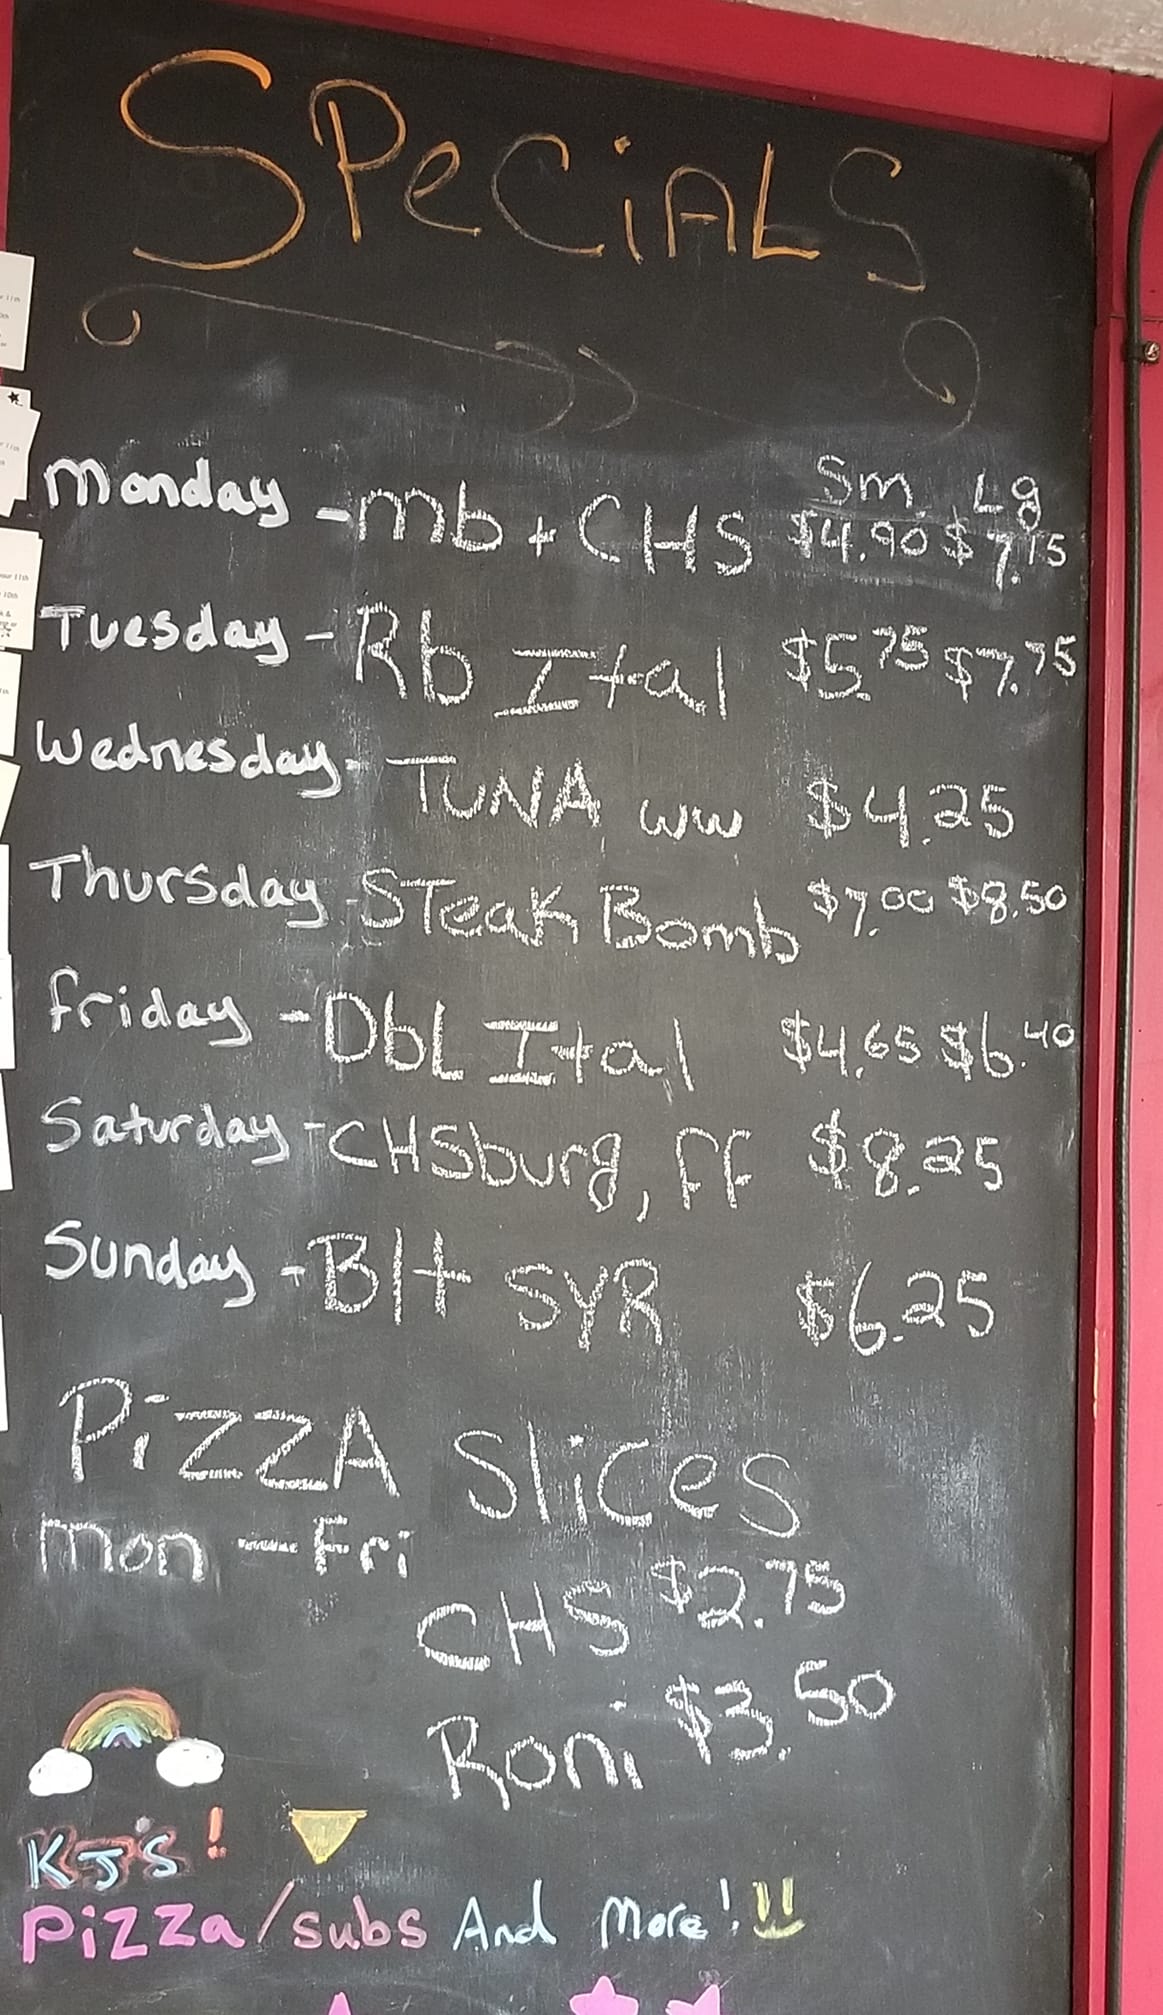 SPeCiALS
Sm. Lg
Monday - mb + CHS $4.90 $7.15
Tuesday - Rb Ital $5.75 $7.75
Wednesday - TUNA ww $4.25
Thursday - STeak Bomb $7.00 $8.50
friday - DbL Ital $4.65 $6.40
Saturday - CHSburg, FF $8.25
Sunday - Blt SYR $6.25
PiZZA SliCes
mon - Fri
CHS $2.75
Roni $3.50
KJ's!
PiZZa/subs And More!!